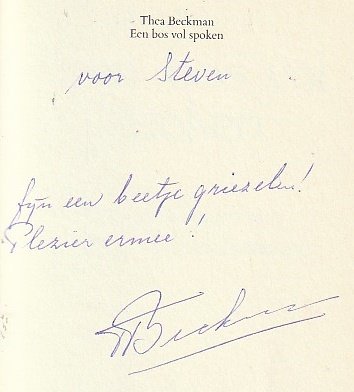 Thea Beckman
Een bos vol spoken
voor Steven
fijn een beetje griezelen!
Plezier ermee!
TBeckman